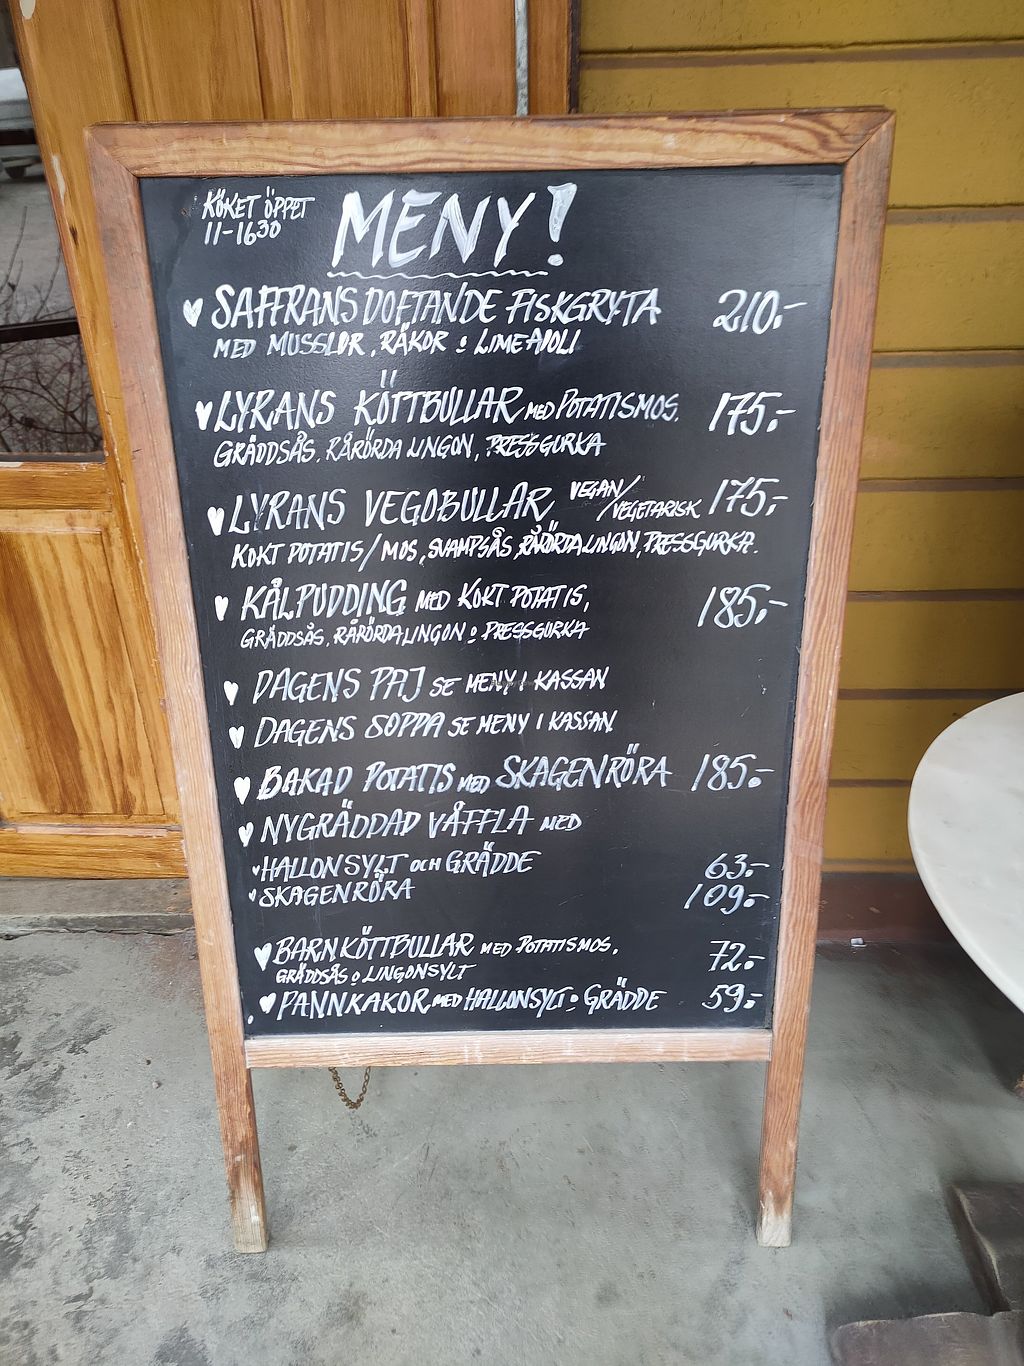 KÖKET ÖPPET
11-1630
MENY!
SAFFRANSDOFTANDE FISKGRYTA 210:-
MED MUSSLOR, RÄKOR & LIMEAIOLI
LYRANS KÖTTBULLAR MED POTATISMOS, 175:-
GRÄDDSÅS, RÅRÖRDA LINGON, PRESSGURKA
LYRANS VEGOBULLAR VEGAN/VEGETARISK 175:-
KOKT POTATIS/MOS, SVAMPSÅS, RÅRÖRDA LINGON, PRESSGURKA.
KÅLPUDDING MED KOKT POTATIS, 185:-
GRÄDDSÅS, RÅRÖRDA LINGON & PRESSGURKA
DAGENS PAJ SE MENY I KASSAN
DAGENS SOPPA SE MENY I KASSAN
BAKAD POTATIS MED SKAGENRÖRA 185:-
NYGRÄDDAD VÅFFLA MED
HALLONSYLT OCH GRÄDDE 63:-
SKAGENRÖRA 109:-
BARNKÖTTBULLAR MED POTATISMOS, 72:-
GRÄDDSÅS & LINGONSYLT
PANNKAKOR MED HALLONSYLT & GRÄDDE 59:-